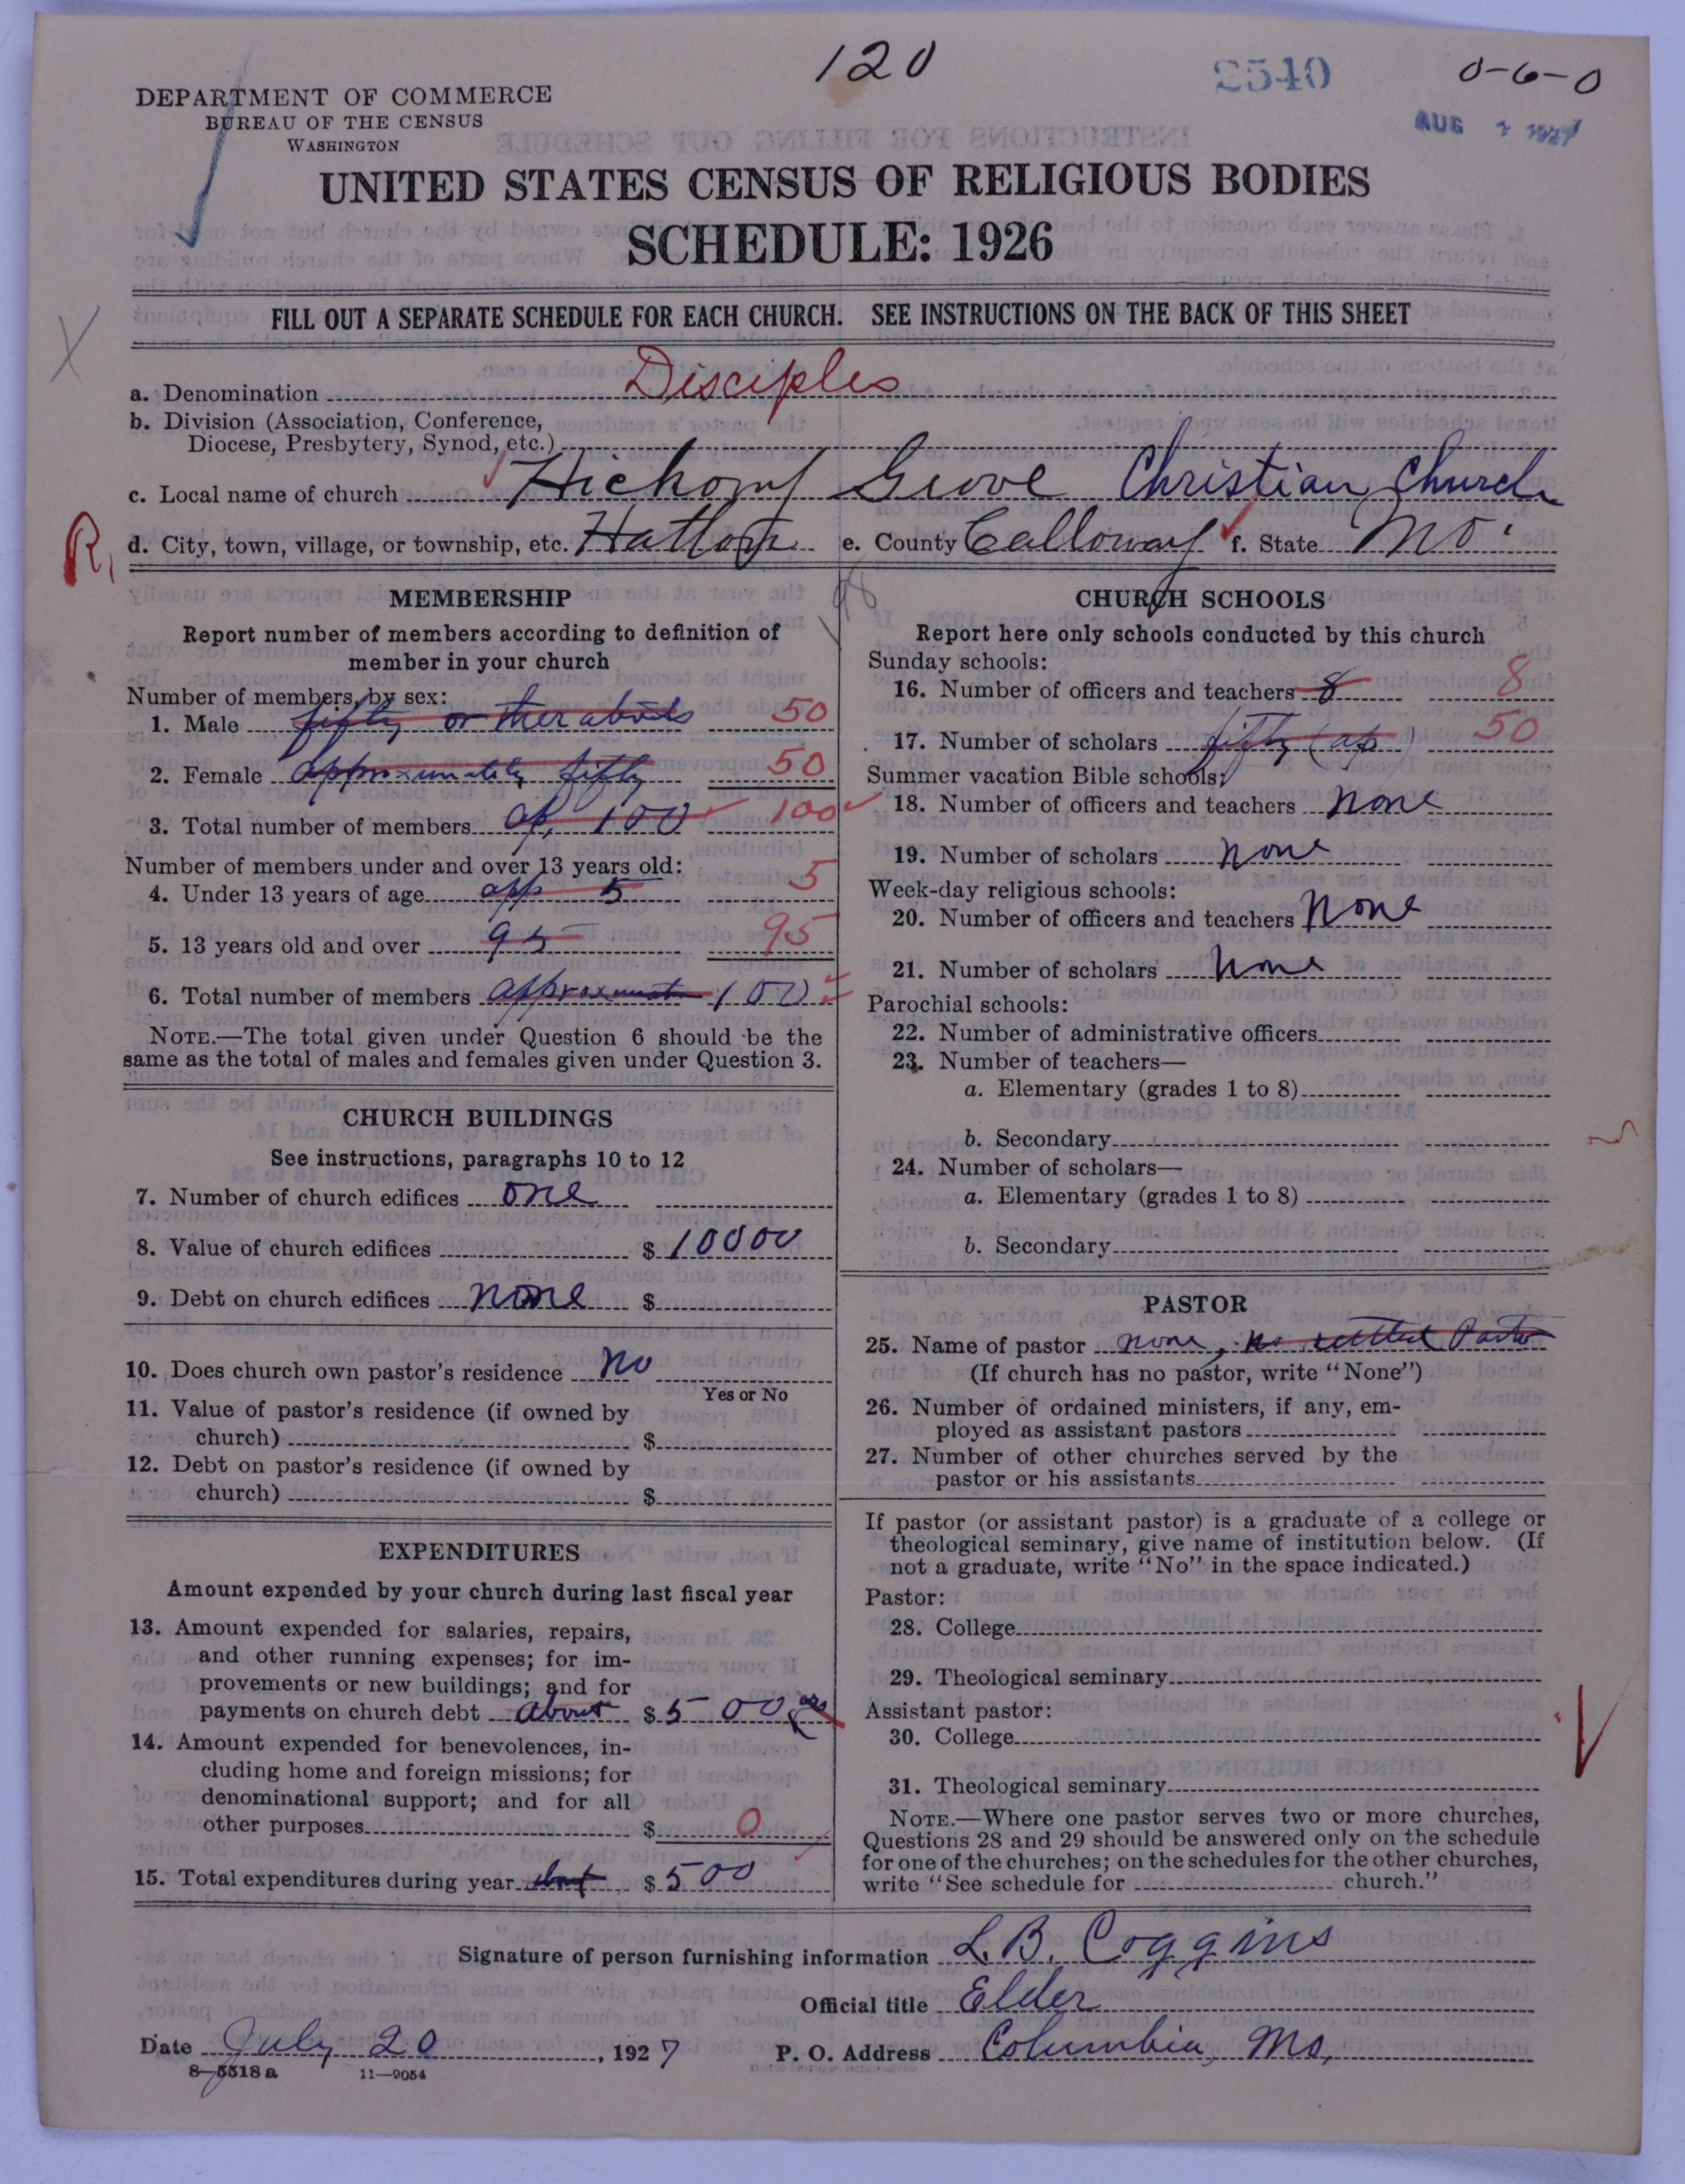 120
2540
0-6-0
AUG 1927
DEPARTMENT OF COMMERCE
BUREAU OF THE CENSUS
WASHINGTON
UNITED STATES CENSUS OF RELIGIOUS BODIES
SCHEDULE: 1926
FILL OUT A SEPARATE SCHEDULE FOR EACH CHURCH. SEE INSTRUCTIONS ON THE BACK OF THIS SHEET
X
a. Denomination Disciples
b. Division (Association, Conference,
Diocese, Presbytery, Synod, etc.)
c. Local name of church Hickory Grove Christian Church
R,
d. City, town, village, or township, etc. Hatton e. County Calloway f. State Mo.
MEMBERSHIP
Report number of members according to definition of
member in your church
Number of members, by sex:
1. Male fifty or therabouts 50
2. Female approximately fifty 50
3. Total number of members ap. 100 100
Number of members under and over 13 years old:
4. Under 13 years of age app 5 5
5. 13 years old and over 95 95
6. Total number of members approximate 100
NOTE.—The total given under Question 6 should be the
same as the total of males and females given under Question 3.
CHURCH BUILDINGS
See instructions, paragraphs 10 to 12
7. Number of church edifices one
8. Value of church edifices $ 10000
9. Debt on church edifices none $
10. Does church own pastor's residence no
Yes or No
11. Value of pastor's residence (if owned by
church) $
12. Debt on pastor's residence (if owned by
church) $
EXPENDITURES
Amount expended by your church during last fiscal year
13. Amount expended for salaries, repairs,
and other running expenses; for im-
provements or new buildings; and for
payments on church debt about $ 500
14. Amount expended for benevolences, in-
cluding home and foreign missions; for
denominational support; and for all
other purposes $ 0
15. Total expenditures during year about $ 500
CHURCH SCHOOLS
Report here only schools conducted by this church
Sunday schools:
16. Number of officers and teachers 8 8
17. Number of scholars fifty (ap) 50
Summer vacation Bible schools:
18. Number of officers and teachers none
19. Number of scholars none
Week-day religious schools:
20. Number of officers and teachers None
21. Number of scholars None
Parochial schools:
22. Number of administrative officers
23. Number of teachers—
a. Elementary (grades 1 to 8)
b. Secondary
24. Number of scholars—
a. Elementary (grades 1 to 8)
b. Secondary
PASTOR
25. Name of pastor none, no settled Pastor
(If church has no pastor, write "None")
26. Number of ordained ministers, if any, em-
ployed as assistant pastors
27. Number of other churches served by the
pastor or his assistants
If pastor (or assistant pastor) is a graduate of a college or
theological seminary, give name of institution below. (If
not a graduate, write "No" in the space indicated.)
Pastor:
28. College
29. Theological seminary
Assistant pastor:
30. College
31. Theological seminary
NOTE.—Where one pastor serves two or more churches,
Questions 28 and 29 should be answered only on the schedule
for one of the churches; on the schedules for the other churches,
write "See schedule for church."
Signature of person furnishing information L. B. Coggins
Official title Elder
Date July 20, 1927 P. O. Address Columbia, Mo.
8—5518 a 11—9054